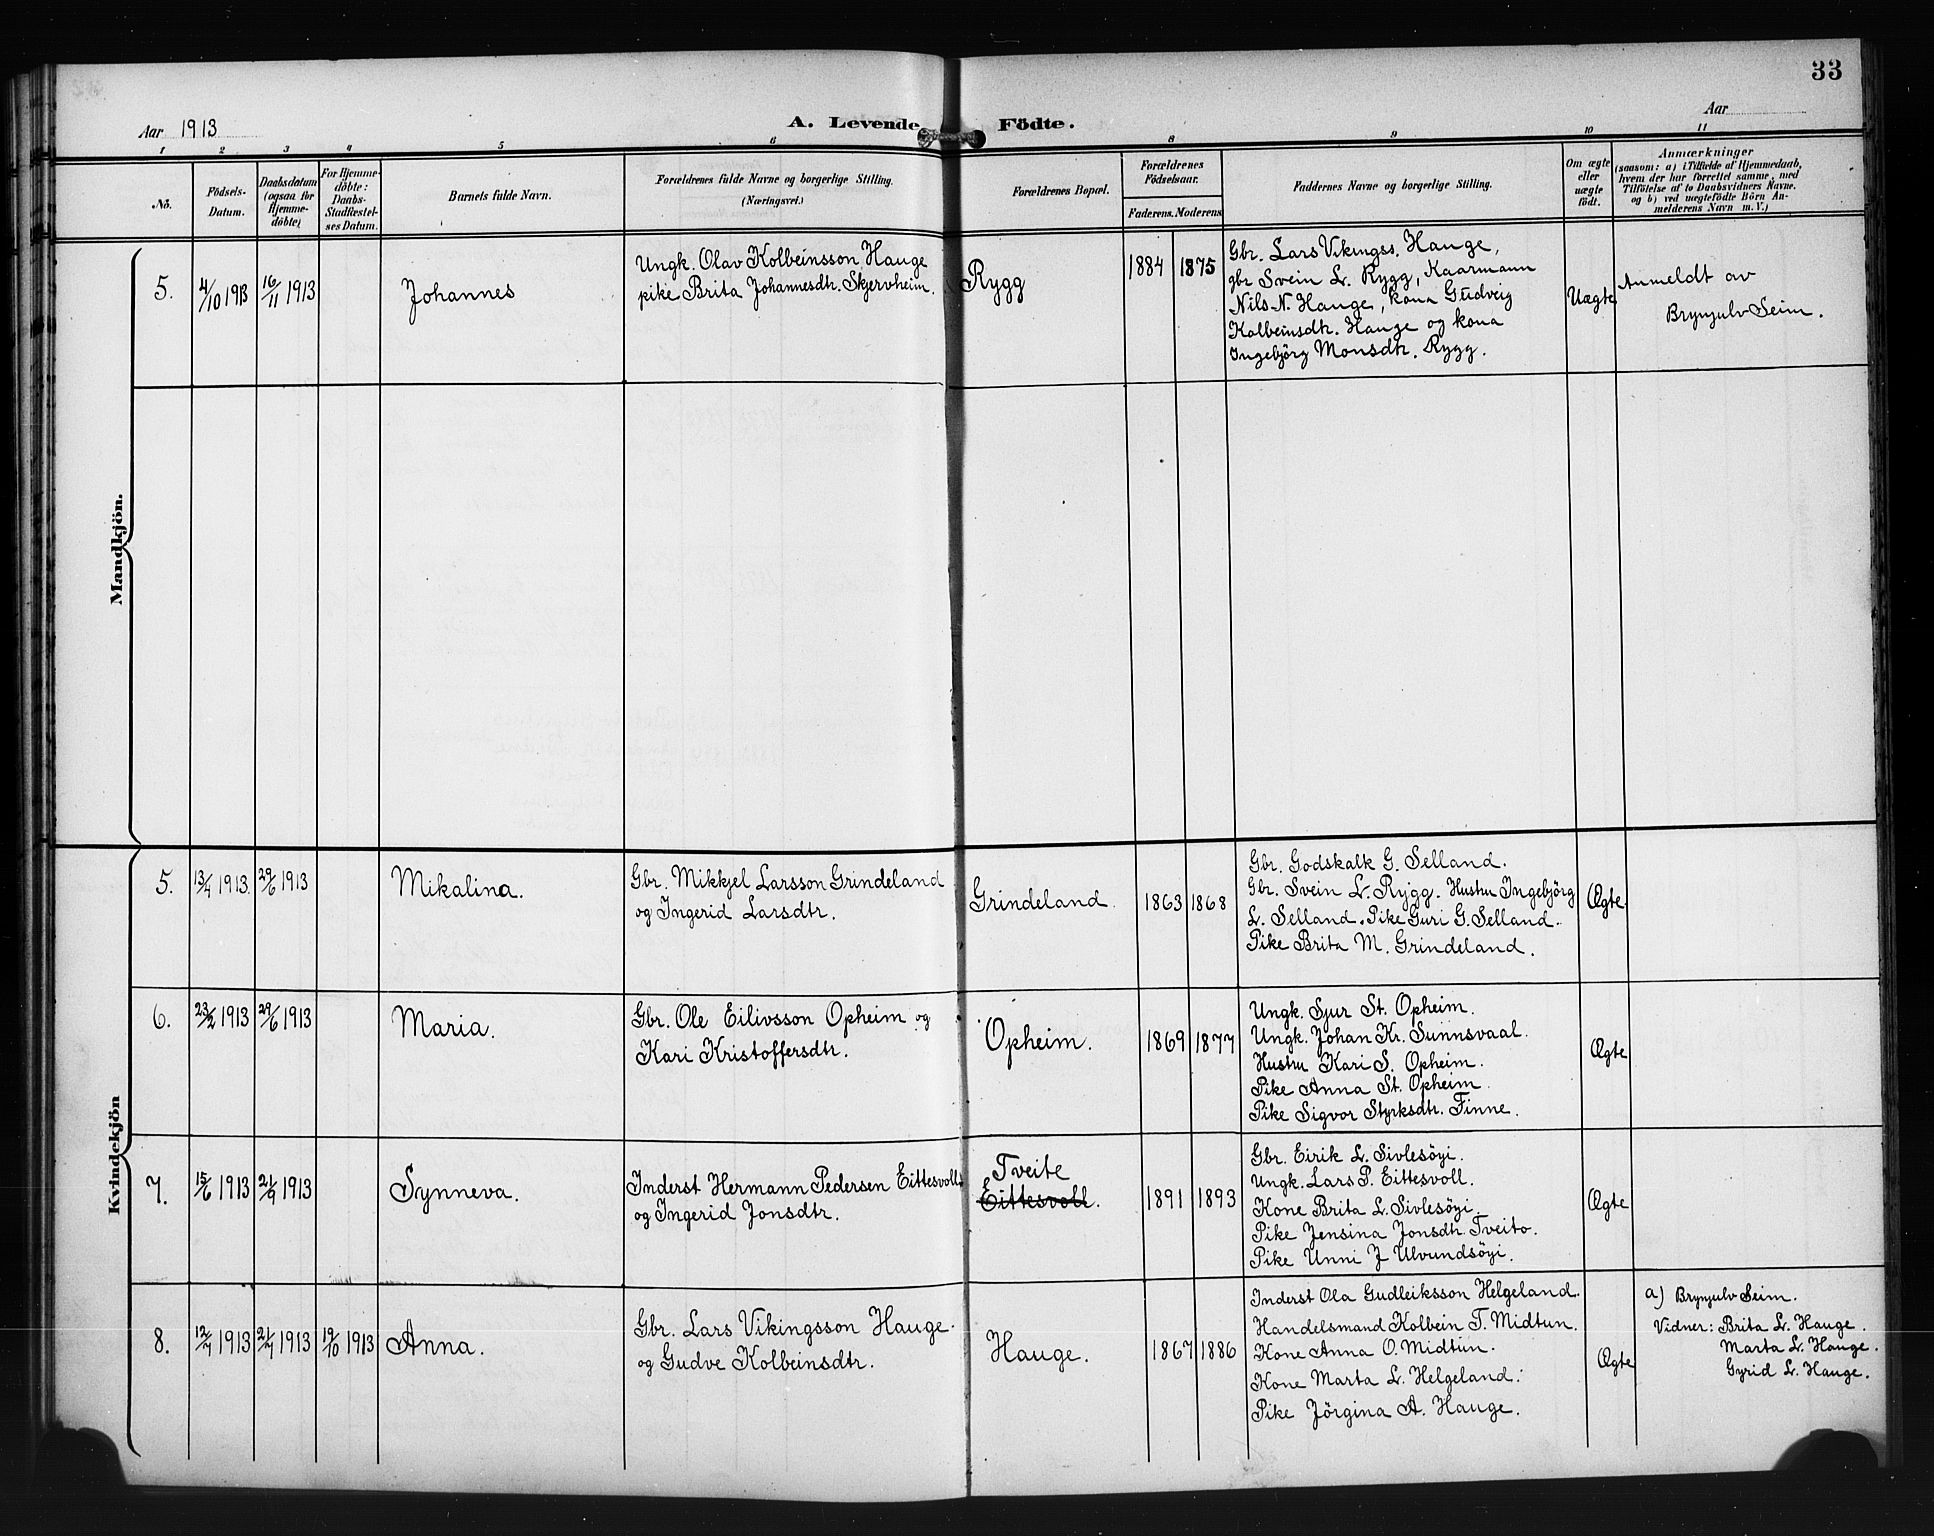 33
Aar 1913
A. Levende Födte.
Aar
1 2 3 4 5 6 8 9 10 11
No.
Födsels-
Datum.
Daabsdatum
(ogsaa for
Hjemme-
döbte)
For Hjemme-
döbte:
Daabs-
Stadfæstel-
ses Datum.
Barnets fulde Navn.
Forældrenes fulde Navne og borgerlige Stilling.
(Næringsvei.)
Forældrenes Bopæl.
Forældrenes
Födselsaar.
Faderens. Moderens.
Faddernes Navne og borgerlige Stilling.
Om ægte
eller
uægte
födt.
Anmærkninger
(saasom: a) i Tilfælde af Hjemmedaab,
hvem der har forrettet samme, med
Tilföielse af to Daabsvidners Navne.
og b) ved uægtefödte Börn An-
melderens Navn m. V.)
Mandkjön.
5. 4/10 1913 16/11 1913
Johannes
Ungk. Olav Kolbeinsson Hauge
pike Brita Johannesdtr. Skjervheim.
Rygg
1884 1875
Gbr. Lars Vikingss. Hauge,
gbr Svein L. Rygg, Kaarmann
Nils N. Hauge, kona Gudveig
Kolbeinsdtr. Hauge og kona
Ingebjörg Monsdtr. Rygg.
Uægte
Anmeldt av
Brynjulv Seim.
Kvindekjön
5. 13/4 1913. 29/6 1913
Mikalina.
Gbr. Mikkjel Larsson Grindeland
og Ingerid Larsdtr.
Grindeland.
1863 1868
Gbr. Godskalk G. Selland.
Gbr. Svein L. Rygg. Hustru Ingebjörg
L. Selland. Pike Guri G. Selland.
Pike Brita M. Grindeland.
Ægte
6. 23/2 1913 29/6 1913
Maria.
Gbr. Ole Eilivsson Opheim og
Kari Kristoffersdtr.
Opheim.
1869 1877
Ungk. Sjur St. Opheim.
Ungk. Johan Kr. Sunnsvaal.
Hustru Kari S. Opheim.
Pike Anna St. Opheim
Pike Sigvor Styrksdtr. Finne.
Ægte
7. 15/6 1913 21/9 1913
Synneva.
Inderst Hermann Pedersen Eittesvoll
og Ingerid Jonsdtr.
Tveite
Eittesvoll.
1891 1893
Gbr. Eirik L. Sivlesöyi.
Ungk. Lars P. Eittesvoll.
Kone Brita L. Sivlesöyi.
Pike Jensina Jonsdtr. Tveito.
Pike Unni J Ulvundsöyi.
Ægte
8. 12/7 1913 21/7 1913 19/10 1913
Anna.
Gbr. Lars Vikingsson Hauge.
og Gudve Kolbeinsdtr.
Hauge.
1867 1886
Inderst Ola Gudleiksson Helgeland.
Handelsmand Kolbein T. Midtun.
Kone Anna O. Midtun.
Kone Marta L. Helgeland.
Pike Jörgina A. Hauge.
Ægte
a) Brynjulv Seim.
Vidner: Brita L. Hauge.
Marta L. Hauge.
Gyrid L. Hauge.